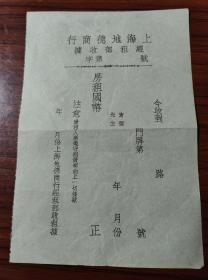 上海地德商行
經租部收據
字第 號
今收到 路
門牌第 號
寶號
先生
年 月份
房租國幣 正
注意
年 月份上海地德商行經租部